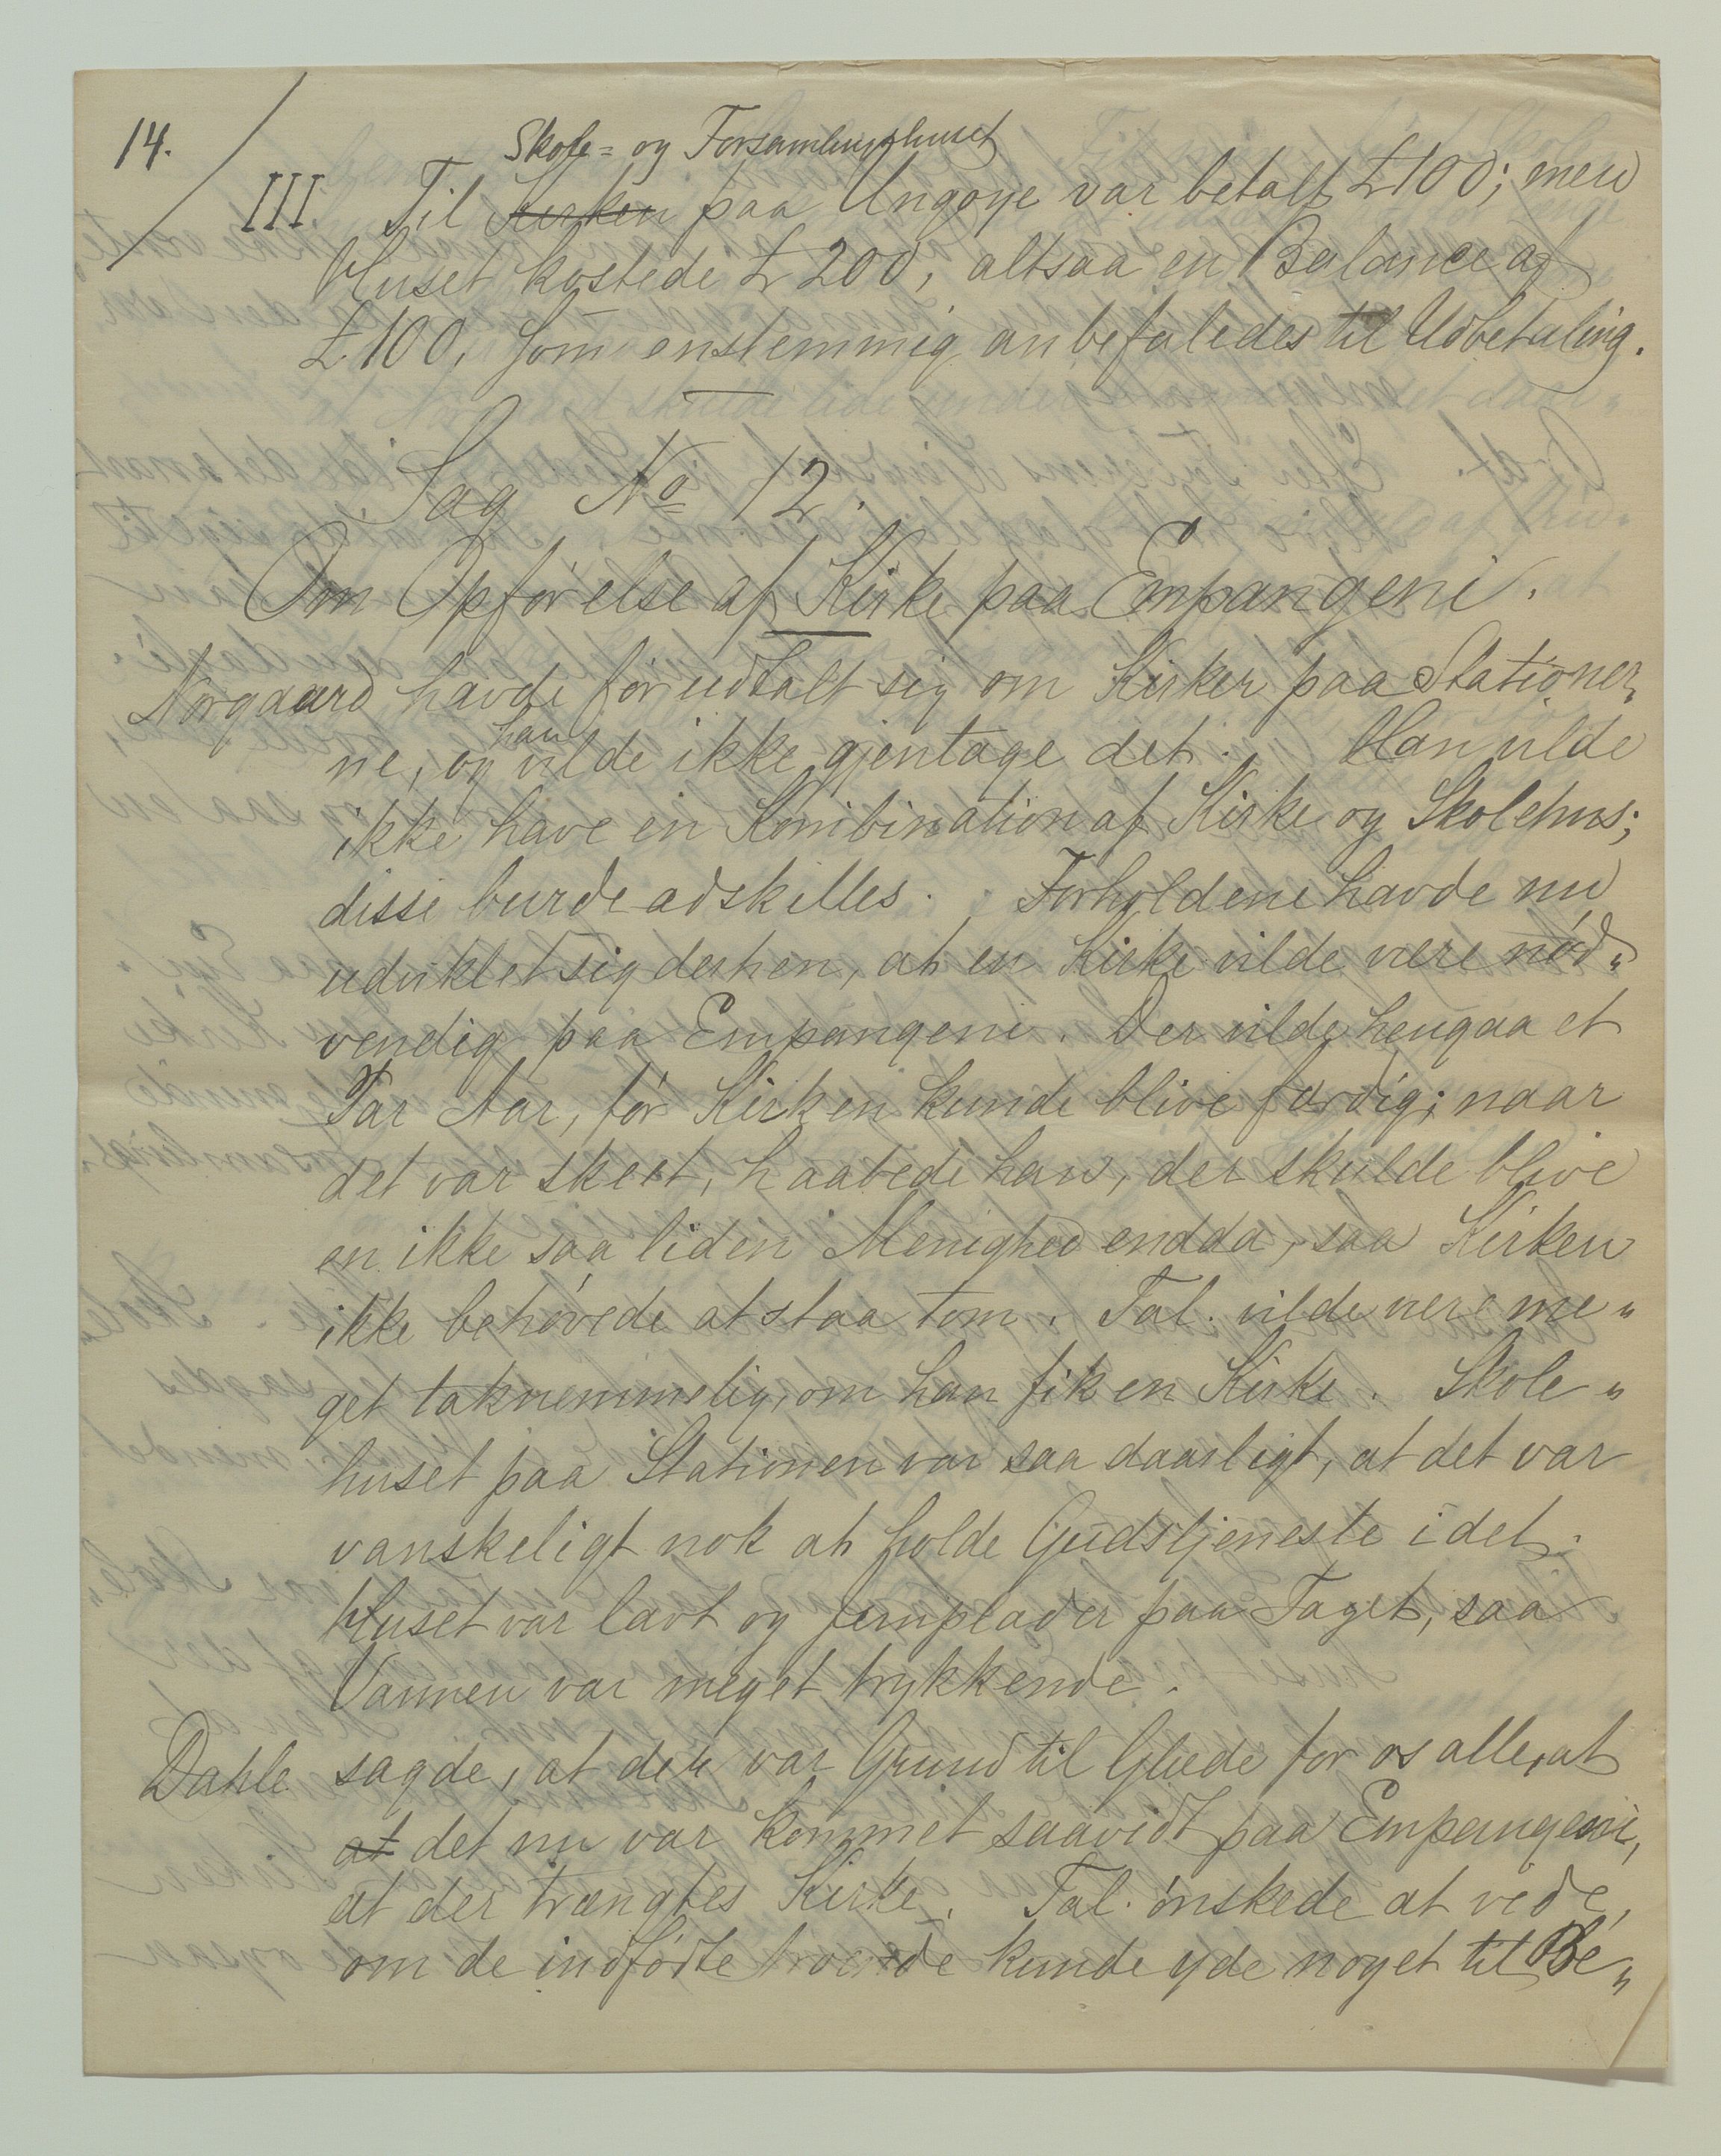 14.
Skole= og Forsamlingshuset
III Til Kirken paa Ungoye var betalt £100; men
Huset kostede £200, altsaa en Balance af
£100, som enstemmig anbefaledes til Udbetaling.
Sag No 12.
Om Opførelse af Kirke paa Empangeni.
Norgaard havde før udtalt sig om Kirker paa Stationer„
han
ne, og vilde ikke gjentage det. Han vilde
ikke have en Kombination af Kirke og Skolehus;
disse burde adskilles. Forholdene havde nu
udviklet sig derhen, at en Kirke vilde være nød„
vendig paa Empangeni. Der vilde hengaa et
Par Aar, før Kirken kunde blive færdig; naar
det var skeet, haabede han, der skulde blive
en ikke saa liden Menighed endda, saa Kirken
ikke behøvede at staa tom. Tal. vilde være me„
get taknemmelig, om han fik en Kirke. Skole„
huset paa Stationen var saa daarligt, at det var
vanskeligt nok at holde Gudstjeneste i det.
Huset var lavt og Jernplader paa Taget, saa
Varmen var meget trykkende.
Dahle sagde, at det var Grund til Glæde for os alle, at
at det nu var kommet saavidt paa Empangeni,
at der trængtes Kirke. Tal. ønskede at vide,
om de indfødte troende kunde yde noget til Be„